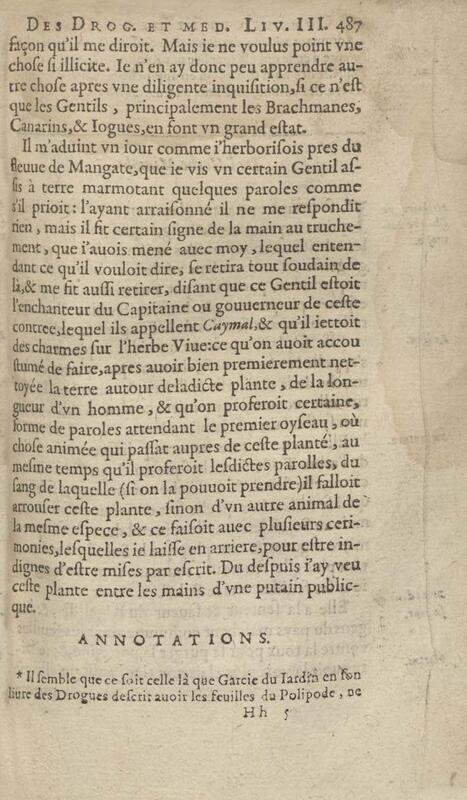 DES DROG. ET MED. LIV. III. 487
façon qu'il me diroit. Mais ie ne voulus point vne
chose si illicite. Ie n'en ay donc peu apprendre au-
tre chose apres vne diligente inquisition, si ce n'est
que les Gentils, principalement les Brachmanes,
Canarins, & Iogues, en font vn grand estat.
Il m'aduint vn iour comme i'herborisois pres du
fleuue de Mangate, que ie vis vn certain Gentil as-
sis à terre marmotant quelques paroles comme
s'il prioit: l'ayant arraisonné il ne me respondit
rien, mais il fit certain signe de la main au truche-
ment, que i'auois mené auec moy, lequel enten-
dant ce qu'il vouloit dire, se retira tout soudain de
là, & me fit aussi retirer, disant que ce Gentil estoit
l'enchanteur du Capitaine ou gouuerneur de ceste
contree, lequel ils appellent Caymal, & qu'il iettoit
des charmes sur l'herbe Viue: ce qu'on auoit accou
stumé de faire, apres auoir bien premierement net-
toyée la terre autour deladicte plante, de la lon-
gueur d'vn homme, & qu'on proferoit certaine,
forme de paroles attendant le premier oyseau, où
chose animée qui passat aupres de ceste planté, au
mesme temps qu'il proferoit lesdictes parolles, du
sang de laquelle (si on la pouuoit prendre) il falloit
arrouser ceste plante, sinon d'vn autre animal de
la mesme espece, & ce faisoit auec plusieurs ceri-
monies, lesquelles ie laisse en arriere, pour estre in-
dignes d'estre mises par escrit. Du despuis i'ay veu
ceste plante entre les mains d'vne putain public-
que.
ANNOTATIONS.
* Il semble que ce soit celle là que Garcie du Iardin en son
liure des Drogues descrit auoir les feuilles du Polipode, ne
Hh 5